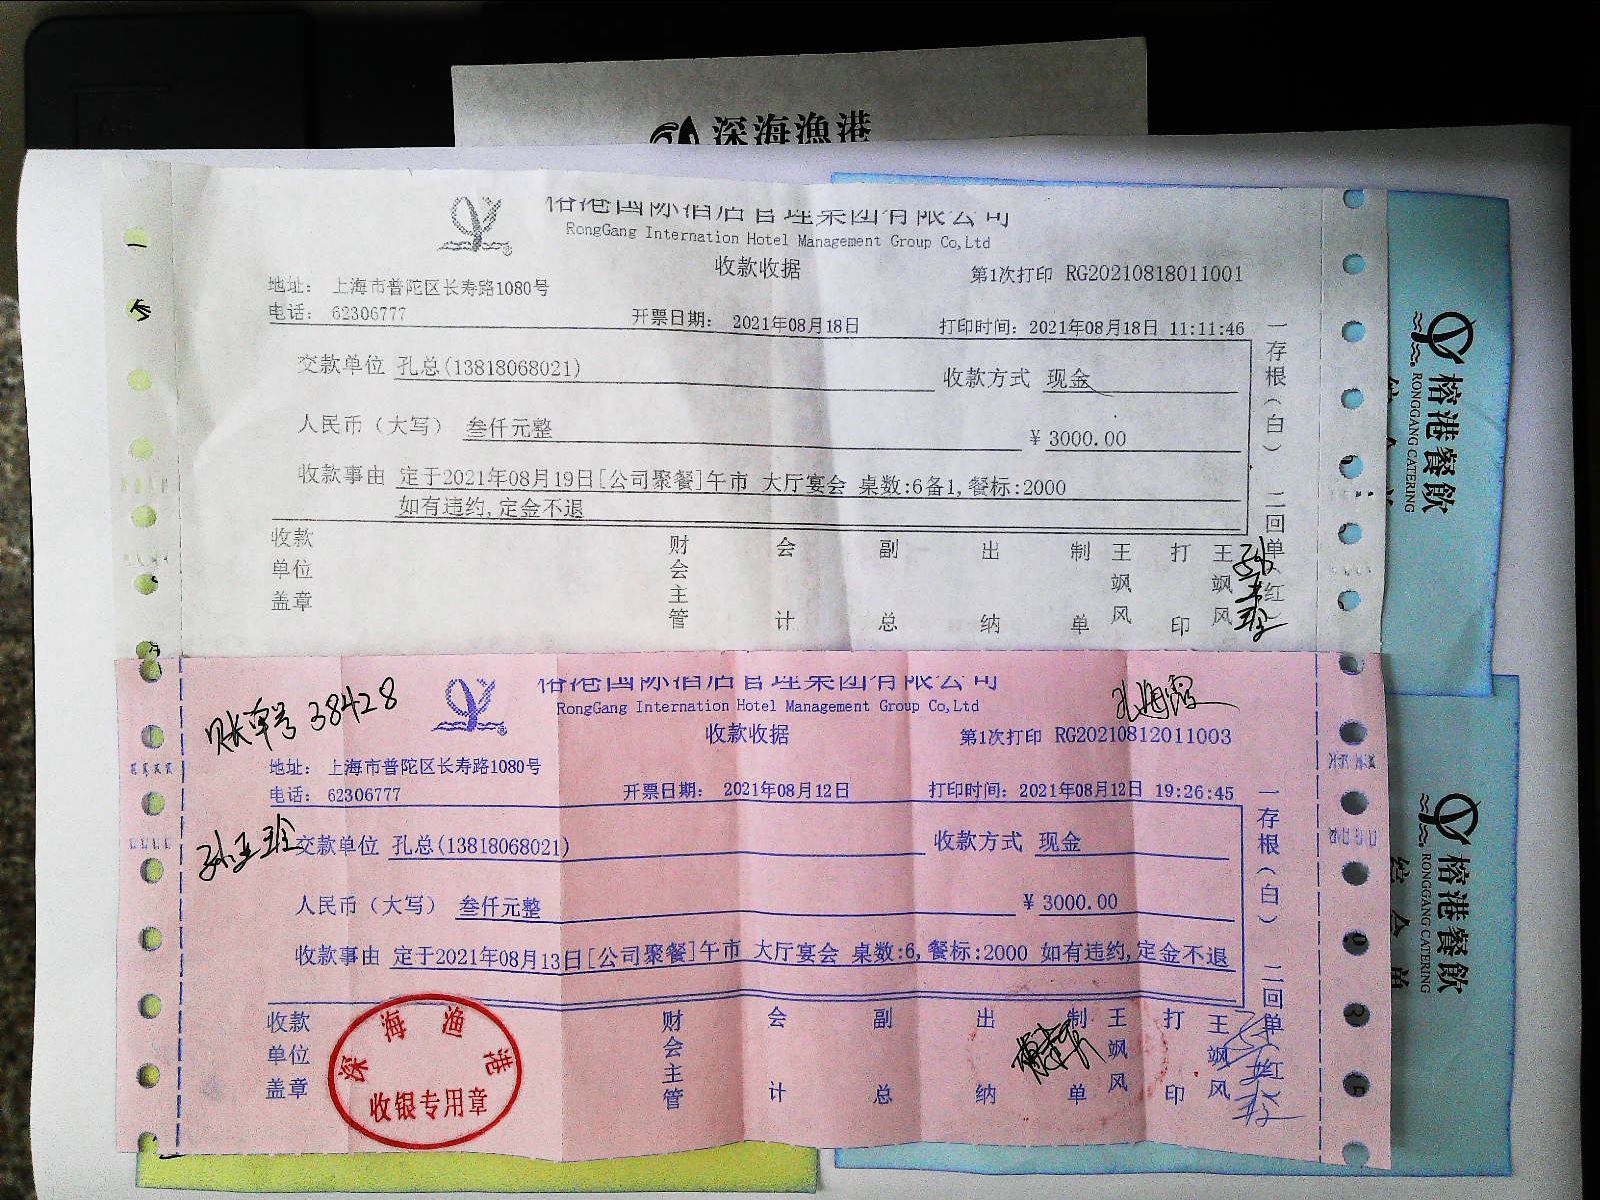 深海漁港
榕港国际酒店管理集团有限公司
RongGang Internation Hotel Management Group Co,Ltd
收款收据
第1次打印 RG20210818011001
地址： 上海市普陀区长寿路1080号
电话： 62306777
开票日期： 2021年08月18日
打印时间：2021年08月18日 11:11:46
交款单位 孔总(13818068021)
收款方式 现金
人民币（大写） 叁仟元整
¥ 3000.00
收款事由 定于2021年08月19日[公司聚餐]午市 大厅宴会 桌数:6备1,餐标:2000
如有违约,定金不退
收款单位盖章
财会主管
会计
副总
出纳
制单
王飒风
打印
王飒风
一存根（白） 二回单（红）
榕港国际酒店管理集团有限公司
RongGang Internation Hotel Management Group Co,Ltd
收款收据
账单号 38428
第1次打印 RG20210812011003
地址： 上海市普陀区长寿路1080号
电话： 62306777
开票日期： 2021年08月12日
打印时间：2021年08月12日 19:26:45
交款单位 孔总(13818068021)
收款方式 现金
人民币（大写） 叁仟元整
¥ 3000.00
收款事由 定于2021年08月13日[公司聚餐]午市 大厅宴会 桌数:6,餐标:2000 如有违约,定金不退
收款单位盖章
深海渔港
收银专用章
财会主管
会计
副总
出纳
制单
王飒风
打印
王飒风
一存根（白） 二回单（红）
榕港餐飲
RONGGANG CATERING
榕港餐飲
RONGGANG CATERING